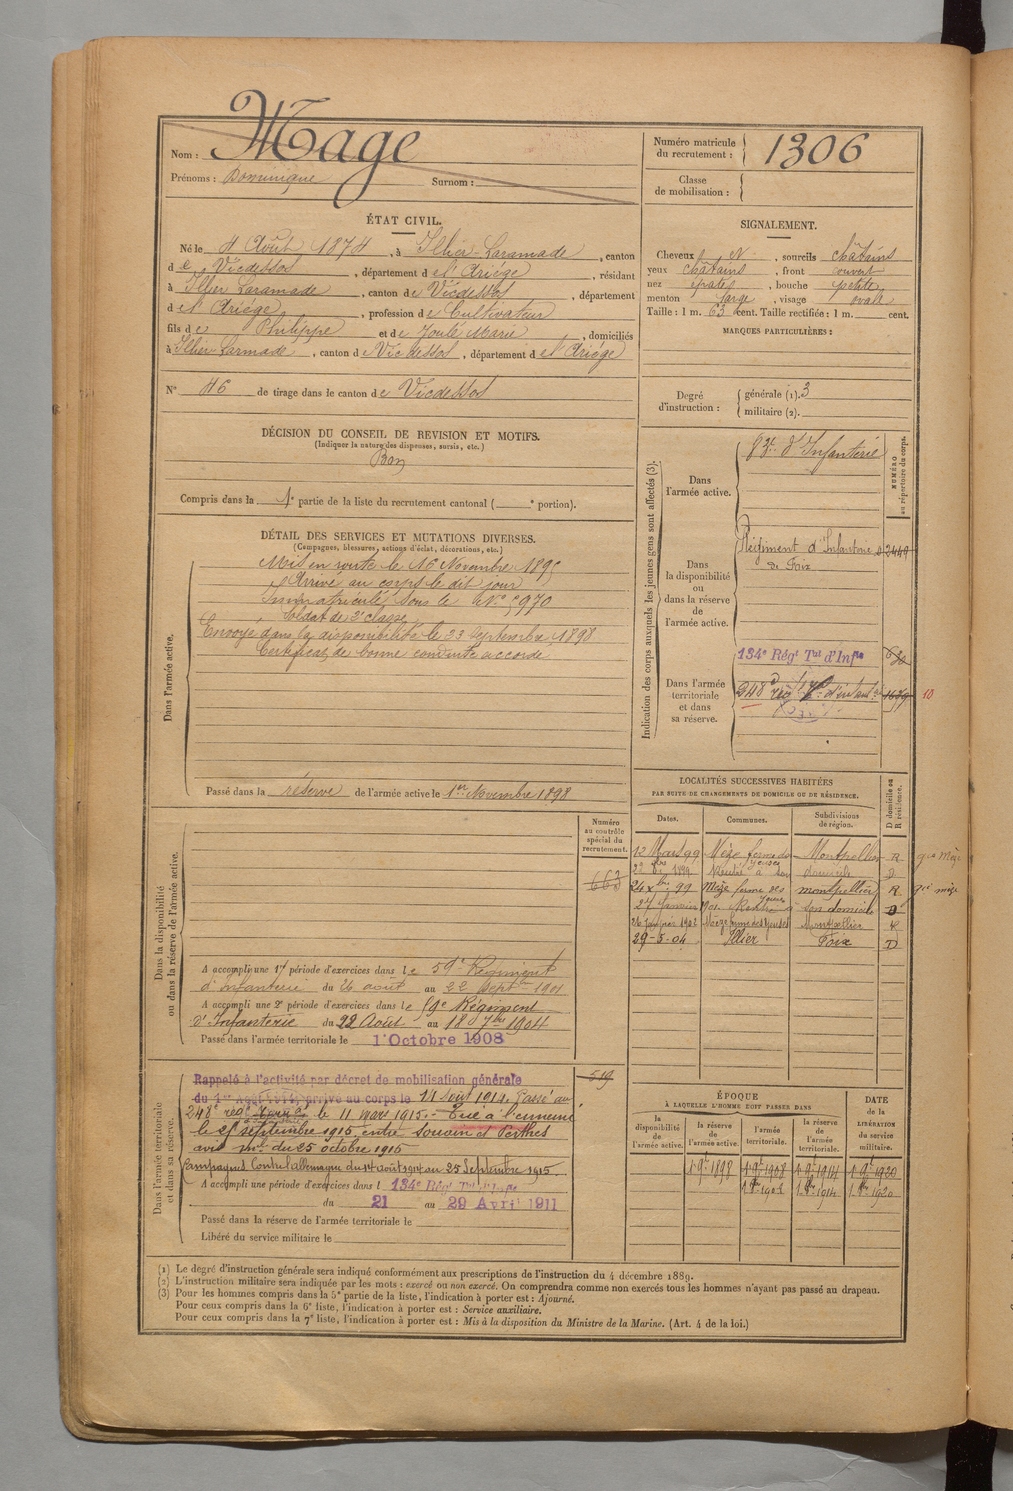 Nom : Mage
Prénoms : Dominique Surnom :
Numéro matricule du recrutement : 1306
Classe de mobilisation :
ÉTAT CIVIL.
Né le 4 Août 1874, à Illier-Laramade, canton
de Vicdessos, département de l'Ariège, résidant
à Illier Laramade, canton de Vicdessos, département
de l'Ariège, profession de Cultivateur
fils de Philippe et de Joulé Marie, domiciliés
à Illier Larmade, canton de Vicdessos, département de l'Ariège
N° 46 de tirage dans le canton de Vicdessos
SIGNALEMENT.
Cheveux N, sourcils châtains
yeux châtains, front couvert
nez épaté, bouche petite
menton large, visage ovale
Taille : 1 m. 63 cent. Taille rectifiée : 1 m. cent.
MARQUES PARTICULIÈRES :
Degré d'instruction : générale (1). 3
militaire (2).
DÉCISION DU CONSEIL DE REVISION ET MOTIFS.
(Indiquer la nature des dispenses, sursis, etc.)
Bon
Compris dans la 1e partie de la liste du recrutement cantonal ( e portion).
DÉTAIL DES SERVICES ET MUTATIONS DIVERSES.
(Campagnes, blessures, actions d'éclat, décorations, etc.)
Dans l'armée active.
Mis en route le 16 Novembre 1895
Arrivé au corps le dit jour
Immatriculé sous le N° 5970
Soldat de 2e classe
Envoyé dans la disponibilité le 23 septembre 1898
Certificat de bonne conduite accordé
Passé dans la réserve de l'armée active le 1er Novembre 1898
Indication des corps auxquels les jeunes gens sont affectés (3).
NUMÉRO au répertoire du corps.
Dans l'armée active.
d'Infanterie
Dans la disponibilité ou dans la réserve de l'armée active.
Régiment d'Infanterie 2449
de Foix
Dans l'armée territoriale et dans sa réserve.
134e Régt Tal d'Infie 630
248e rég d'infant 10
LOCALITÉS SUCCESSIVES HABITÉES
PAR SUITE DE CHANGEMENTS DE DOMICILE OU DE RÉSIDENCE.
Dates. Communes. Subdivisions de région. D domicile ou R résidence.
12 Mars 99 Mèze ferme des Yeuses Montpellier R
1899 Rentré à son domicile D
24 Xbre 99 Mèze ferme des Yeuses montpellier R
27 Janvier 901 Rentré à son domicile D
26 Janvier 1902 Mèze ferme des Yeuses Montpellier R
29-5-04 Illier Foix D
Dans la disponibilité ou dans la réserve de l'armée active.
Numéro au contrôle spécial du recrutement.
663
A accompli une 1re période d'exercices dans le 59e Régiment
d'Infanterie du 26 août au 22 Sept 1901
A accompli une 2e période d'exercices dans le 59e Régiment
d'Infanterie du 22 Août au 18 7bre 1904
Passé dans l'armée territoriale le 1 Octobre 1908
Dans l'armée territoriale et dans sa réserve.
519
Rappelé à l'activité par décret de mobilisation générale
du 1er Août 1914, arrivé au corps le 14 août 1914. Passé au
248e rég le 11 mars 1915. - Tué à l'ennemi
le 25 septembre 1915 entre Souain et Perthes
avis mel du 25 octobre 1915
Campagnes Contre l'allemagne du 14 août 1914 au 25 Septembre 1915
A accompli une période d'exercices dans l 134e Régt Tal d'Infie
du 21 au 29 Avril 1911
Passé dans la réserve de l'armée territoriale le
Libéré du service militaire le
ÉPOQUE
À LAQUELLE L'HOMME DOIT PASSER DANS
la disponibilité de l'armée active. la réserve de l'armée active. l'armée territoriale. la réserve de l'armée territoriale.
DATE de la LIBÉRATION du service militaire.
1 9e 1898 1 9e 1908 1 9e 1914 1 9e 1920
(1) Le degré d'instruction générale sera indiqué conformément aux prescriptions de l'instruction du 4 décembre 1889.
(2) L'instruction militaire sera indiquée par les mots : exercé ou non exercé. On comprendra comme non exercés tous les hommes n'ayant pas passé au drapeau.
(3) Pour les hommes compris dans la 5e partie de la liste, l'indication à porter est : Ajourné.
Pour ceux compris dans la 6e liste, l'indication à porter est : Service auxiliaire.
Pour ceux compris dans la 7e liste, l'indication à porter est : Mis à la disposition du Ministre de la Marine. (Art. 4 de la loi.)